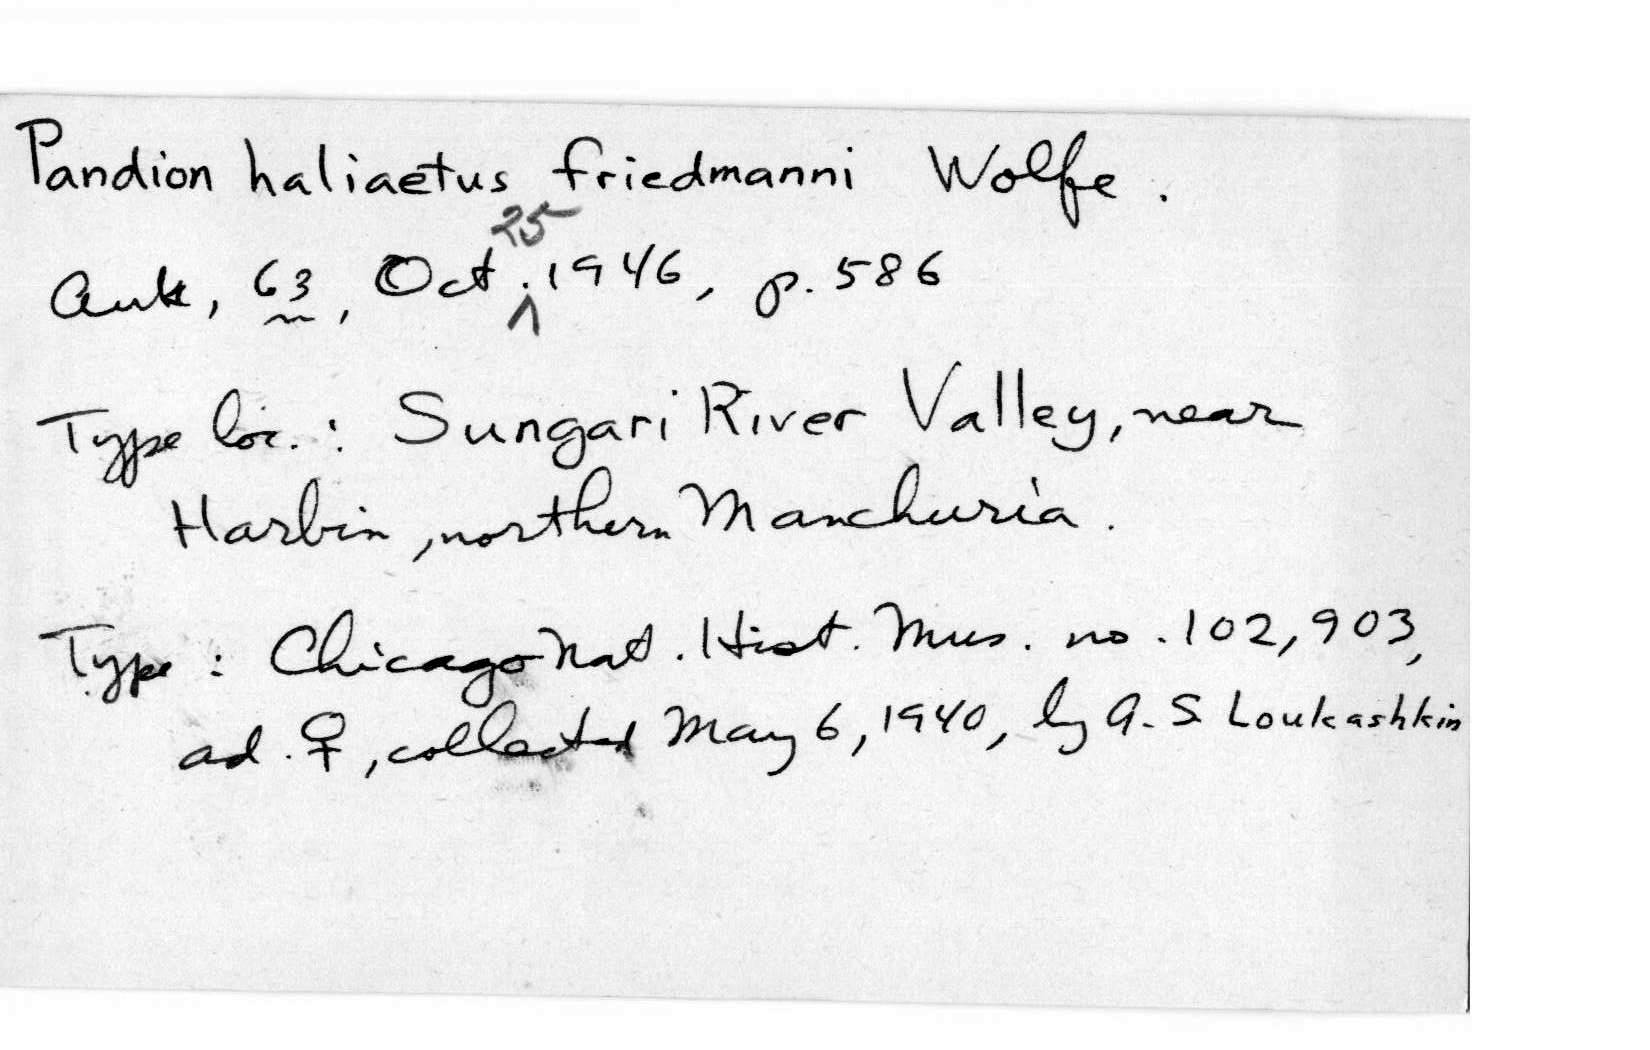 Pandion haliaetus friedmanni Wolfe.
Auk, 63, Oct. 25 1946, p. 586
Type loc.: Sungari River Valley, near
Harbin, northern Manchuria.
Type: Chicago Nat. Hist. Mus. no. 102,903,
ad. ♀, collected May 6, 1940, by A. S. Loukashkin